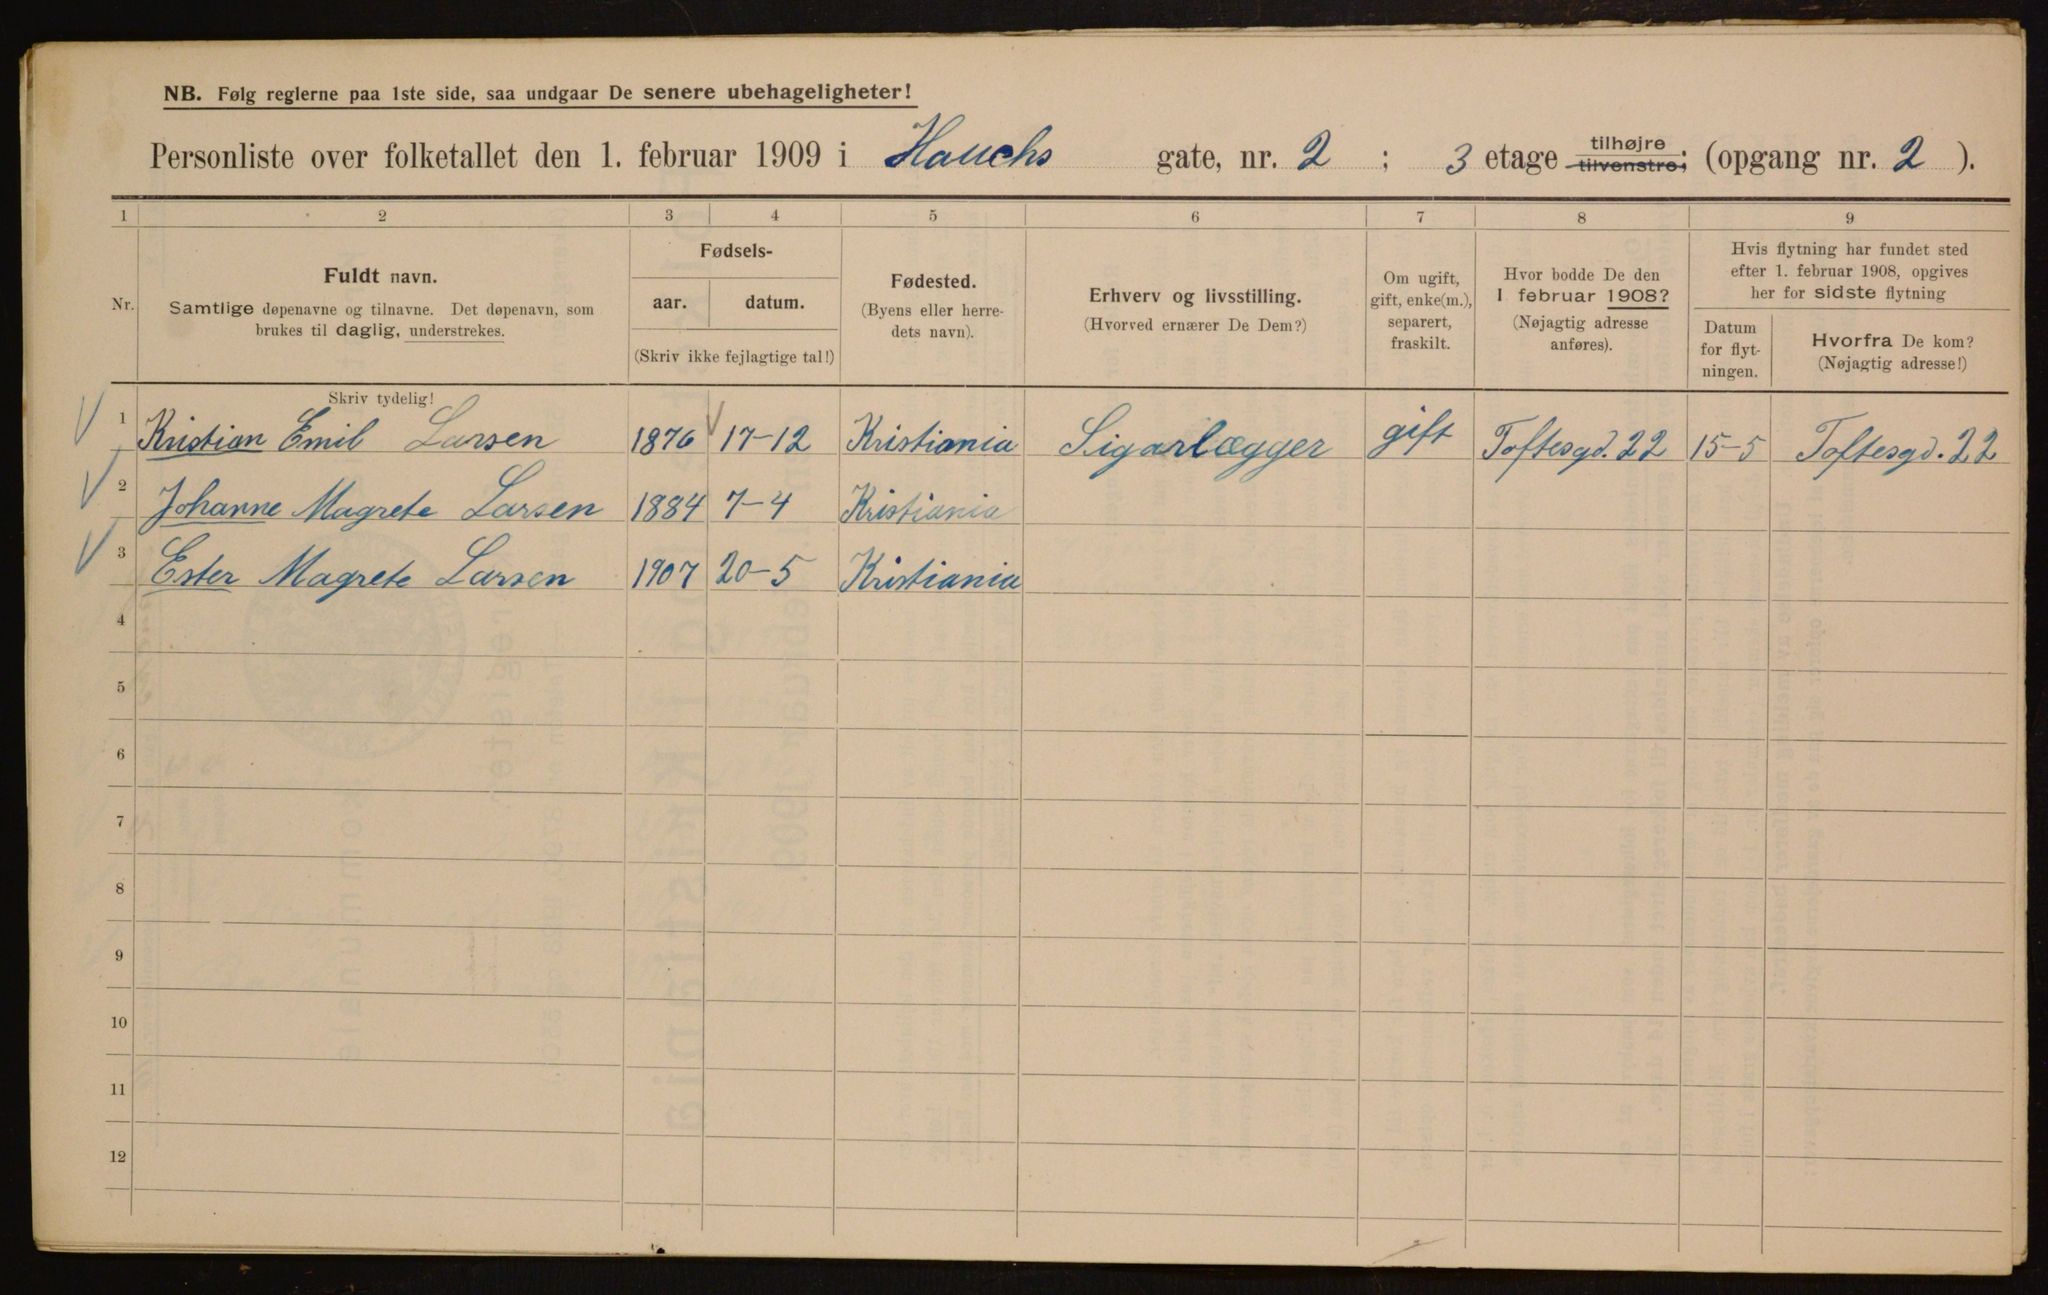 NB. Følg reglerne paa 1ste side, saa undgaar De senere ubehageligheter!
Personliste over folketallet den 1. februar 1909 i Hauchs gate, nr. 2 ; 3 etage tilhøjre tilvenstre; (opgang nr. 2 ).
1 2 3 4 5 6 7 8 9
Nr.
Fuldt navn.
Samtlige døpenavne og tilnavne. Det døpenavn, som
brukes til daglig, understrekes.
Fødsels-
aar. datum.
(Skriv ikke fejlagtige tal!)
Fødested.
(Byens eller herre-
dets navn).
Erhverv og livsstilling.
(Hvorved ernærer De Dem?)
Om ugift,
gift, enke(m.),
separert,
fraskilt.
Hvor bodde De den
1 februar 1908?
(Nøjagtig adresse
anføres).
Hvis flytning har fundet sted
efter 1. februar 1908, opgives
her for sidste flytning
Datum
for flyt-
ningen.
Hvorfra De kom?
(Nøjagtig adresse!)
Skriv tydelig!
1 Kristian Emil Larsen 1876 17-12 Kristiania Sigarlægger gift Toftesgd. 22 15-5 Toftesgd. 22
2 Johanne Magrete Larsen 1884 7-4 Kristiania
3 Ester Magrete Larsen 1907 20-5 Kristiania
4
5
6
7
8
9
10
11
12